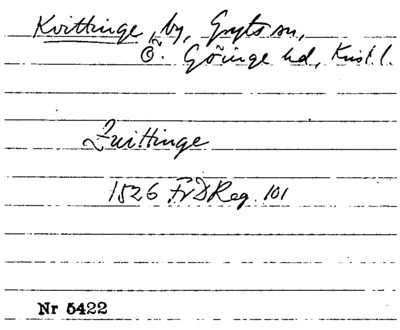 Kvittinge, by, Gryts sn,
Ö. Göinge hd, Krist. l.
Quittinge
1526 FrDReg. 101
Nr 5422